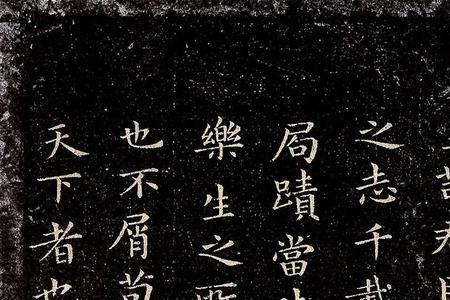 苟君
之志千載
局蹟當
樂生之所
也不屑苟
天下者也